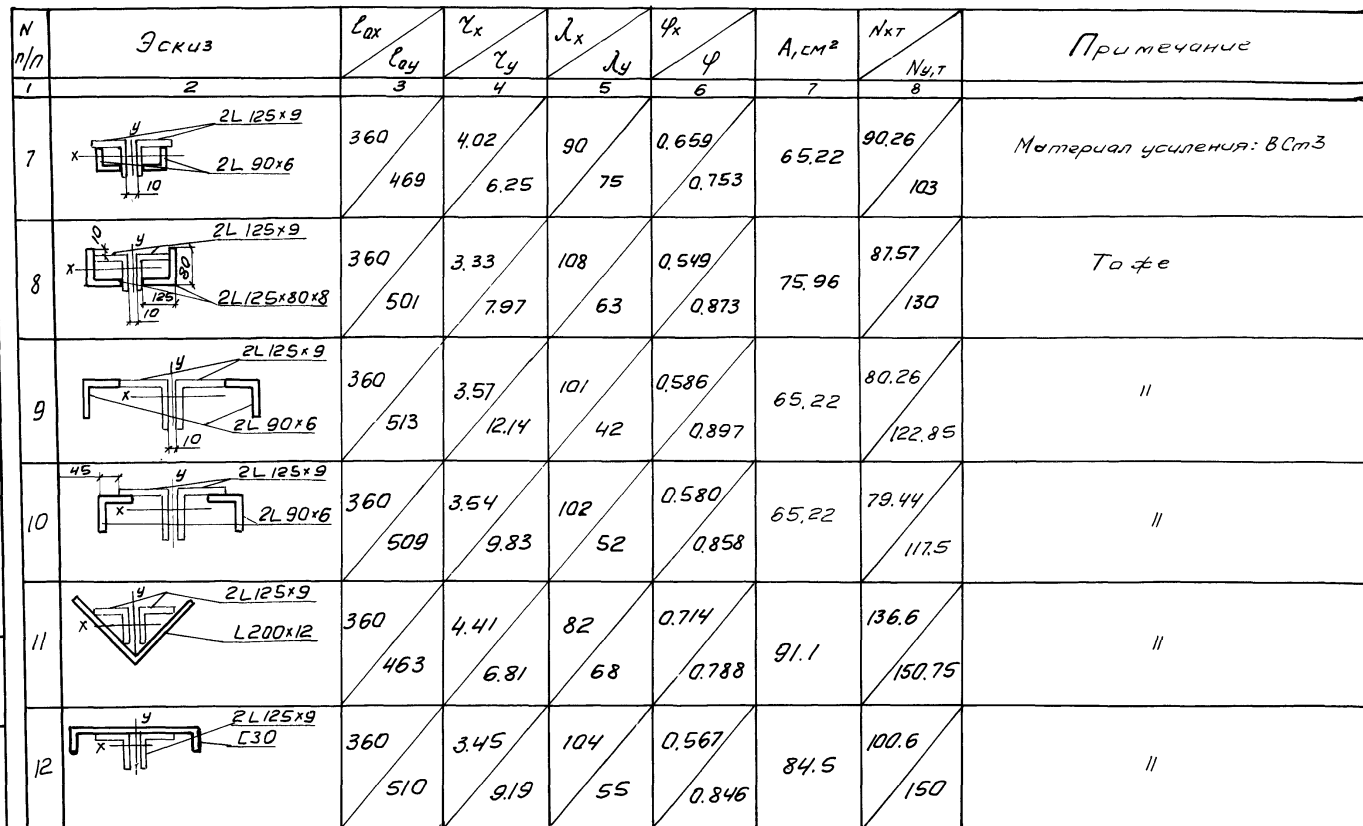 N п/п Эскиз ℓox ℓoy τx τy λx λy φx φ A, см² Nx т Ny, т Примечание
1 2 3 4 5 6 7 8
7 y x 2L 125×9 2L 90×6 10 360 469 4.02 6.25 90 75 0.659 0.753 65.22 90.26 103 Материал усиления: ВСт3
8 10 y x 2L 125×9 80 125 2L125×80×8 10 360 501 3.33 7.97 108 63 0.549 0.873 75.96 87.57 130 То же
9 y x 2L 125×9 2L 90×6 10 360 513 3.57 12.14 101 42 0.586 0.897 65.22 80.26 122.85 "
10 45 y x 2L 125×9 2L 90×6 360 509 3.54 9.83 102 52 0.580 0.858 65.22 79.44 117.5 "
11 y x 2L125×9 L200×12 360 463 4.41 6.81 82 68 0.714 0.788 91.1 136.6 150.75 "
12 y x 2L125×9 [30 360 510 3.45 9.19 104 55 0.567 0.846 84.5 100.6 150 "